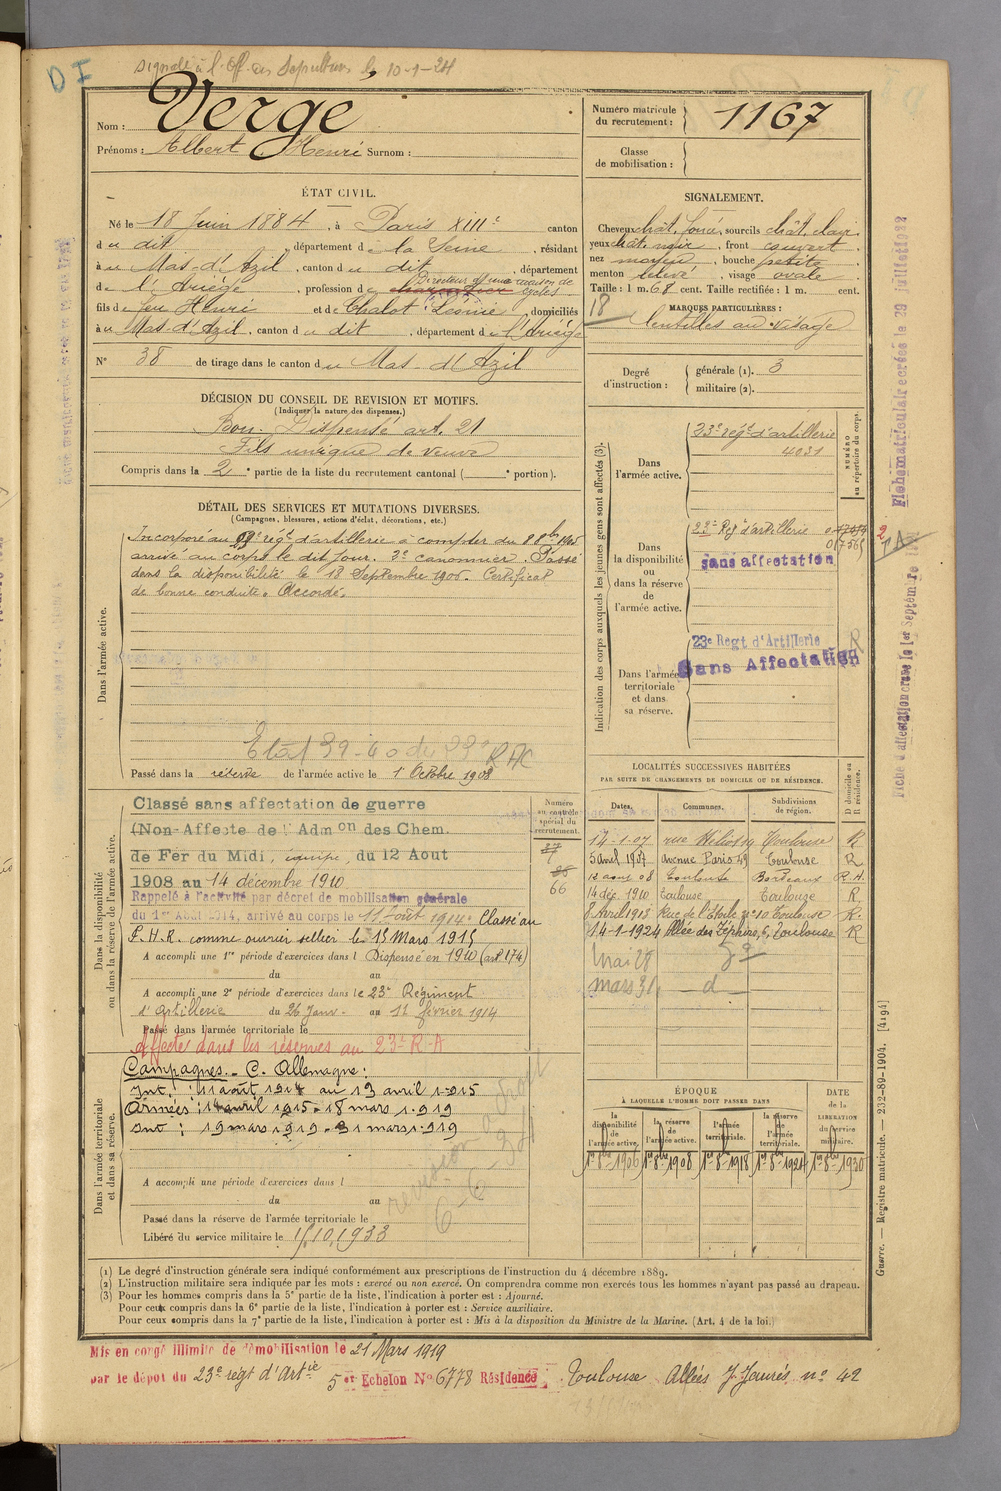 D I
Signalé à l'Off. des Sépultures le 10-1-24
Nom : Vergé
Prénoms : Albert Henri Surnom :
Numéro matricule du recrutement : 1167
Classe de mobilisation :
ÉTAT CIVIL.
Né le 18 Juin 1884, à Paris XIIIe canton
du dit, département de la Seine, résidant
à u Mas-d'Azil, canton du dit, département
de l'Ariège, profession de charcutier Directeur d'une maison de cycles
fils de feu Henri et de Chalot Léonie, domiciliés
à u Mas-d'Azil, canton du dit, département de l'Ariège
N° 38 de tirage dans le canton du Mas-d'Azil
SIGNALEMENT.
Cheveux chât. foncé, sourcils chât. clair
yeux chât. noir, front couvert
nez moyen, bouche petite
menton relevé, visage ovale
Taille : 1 m. 68 cent. Taille rectifiée : 1 m. cent.
MARQUES PARTICULIÈRES :
18 lentilles au visage
Degré d'instruction : générale (1). 3
militaire (2).
DÉCISION DU CONSEIL DE REVISION ET MOTIFS.
(Indiquer la nature des dispenses.)
Bon. Dispensé art. 21
Fils unique de veuve
Compris dans la 2e partie de la liste du recrutement cantonal ( e portion).
DÉTAIL DES SERVICES ET MUTATIONS DIVERSES.
(Campagnes, blessures, actions d'éclat, décorations, etc.)
Dans l'armée active.
Incorporé au 23e régt d'artillerie à compter du 8 8bre 1905
arrivé au corps le dit jour. 2e canonnier. Passé
dans la disponibilité le 18 Septembre 1906. Certificat
de bonne conduite "Accordé"
Etat 39-40 du 23e RAC
Passé dans la réserve de l'armée active le 1er Octobre 1908
Indication des corps auxquels les jeunes gens sont affectés (3).
Dans l'armée active.
23e régt d'artillerie
4031
NUMÉRO au répertoire du corps.
Dans la disponibilité ou dans la réserve de l'armée active.
23e Régt d'artillerie
017365
sans affectation
Dans l'armée territoriale et dans sa réserve.
23e Regt d'Artillerie R
Sans Affectation
Fiche matriculaire créée le 29 juillet 1932
Fiche d'affectation créée le 1er Septembre
Dans la disponibilité ou dans la réserve de l'armée active.
Classé sans affectation de guerre
(Non-Affecté de l'Admon des Chem.
de Fer du Midi, équipe, du 12 Aout
1908 au 14 décembre 1910
Rappelé à l'activité par décret de mobilisation générale
du 1er Août 1914, arrivé au corps le 11 Août 1914. Classé au
P.H.R. comme ouvrier sellier le 15 Mars 1915
A accompli une 1re période d'exercices dans l Dispensé en 1910 (art 174)
du au
A accompli une 2e période d'exercices dans le 23e Régiment
d'Artillerie du 26 Janv. au 11 février 1914
Passé dans l'armée territoriale le
affecté dans les réserves au 23e R-A
Numéro au contrôle spécial du recrutement.
66
LOCALITÉS SUCCESSIVES HABITÉES
PAR SUITE DE CHANGEMENTS DE DOMICILE OU DE RÉSIDENCE.
Dates. Communes. Subdivisions de région. D domicile ou R résidence.
14-1-07 rue Héliot 19 Toulouse R
5 avril 1907 avenue Paris 49 Toulouse R
12 août 08 Toulouse Bordeaux R.A.
14 déc. 1910 Toulouse Toulouze R
8 Avril 1913 Rue de l'Etoile no 10 Toulouse R.
14-1-1924 Allée des Zéphirs, 6, Toulouse R
Mai 28
mars 31 — d —
Dans l'armée territoriale et dans sa réserve.
Campagnes. — C. Allemagne :
Int. : 11 août 1914 au 13 avril 1915
Armées : 14 avril 1915 - 18 mars 1919
Int : 19 mars 1919 - 31 mars 1919
révision à droit
6-6-30
A accompli une période d'exercices dans l
du au
Passé dans la réserve de l'armée territoriale le
Libéré du service militaire le 15.10.1933
ÉPOQUE
À LAQUELLE L'HOMME DOIT PASSER DANS
la disponibilité de l'armée active. la réserve de l'armée active. l'armée territoriale. la réserve de l'armée territoriale.
DATE de la LIBÉRATION du service militaire.
1er 8bre 1906 1er 8bre 1908 1er 8bre 1918 1er 8bre 1924 1er 8bre 1930
(1) Le degré d'instruction générale sera indiqué conformément aux prescriptions de l'instruction du 4 décembre 1889.
(2) L'instruction militaire sera indiquée par les mots : exercé ou non exercé. On comprendra comme non exercés tous les hommes n'ayant pas passé au drapeau.
(3) Pour les hommes compris dans la 5e partie de la liste, l'indication à porter est : Ajourné.
Pour ceux compris dans la 6e partie de la liste, l'indication à porter est : Service auxiliaire.
Pour ceux compris dans la 7e partie de la liste, l'indication à porter est : Mis à la disposition du Ministre de la Marine. (Art. 4 de la loi.)
Guerre. — Registre matricule. — 232-89-1904. [4194]
Mis en congé illimité de démobilisation le 21 Mars 1919
par le dépôt du 23e régt d'Artie 5er Echelon No 6778 Résidence Toulouse Allées J. Jaurès no 42